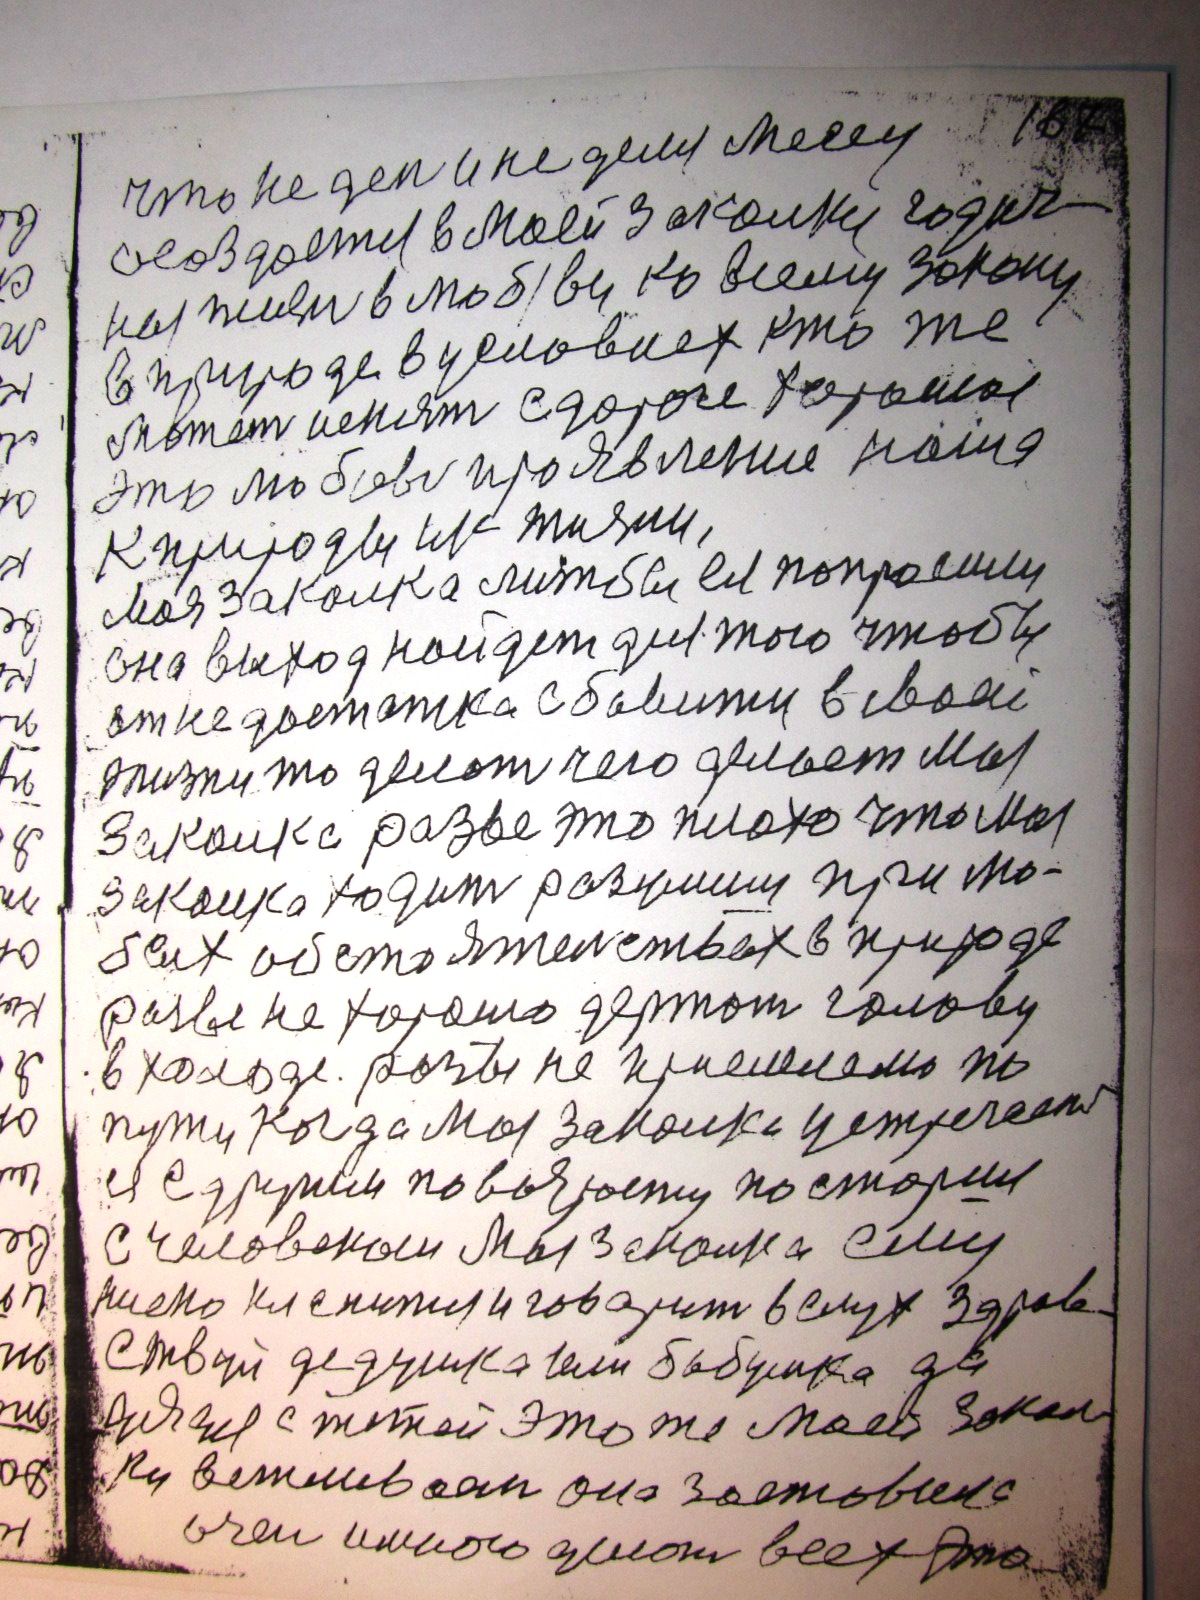 187
что не ден и не деля месец
создается в моей закалки годич-
ная жизн в любви ко всему закону
в природе в условиех кто же
может менят здорове хорошая
это любов проявление наша
к природы и к жизни,
моя закалка лиж бы ея попросили
она выход найдет для того чтобы
от недостатка сбавится в своей
жизни то делат чего делает моя
закалка разве это плохо что моя
закалка ходит разушши при лю-
бых обстоятелствах в природе
разве не хорошо держат голову
в холоде. разве не приемлемо по
пути когда моя закалка устречает
ся с другим по возрасту по старши
с человеком моя закалка ему
ниско кланится и говорит в слух здрав-
ствуй дедушка или бабушка да
дядя с тетей это же моей закал-
ки вежливаст она заставила
очен много делат всех это